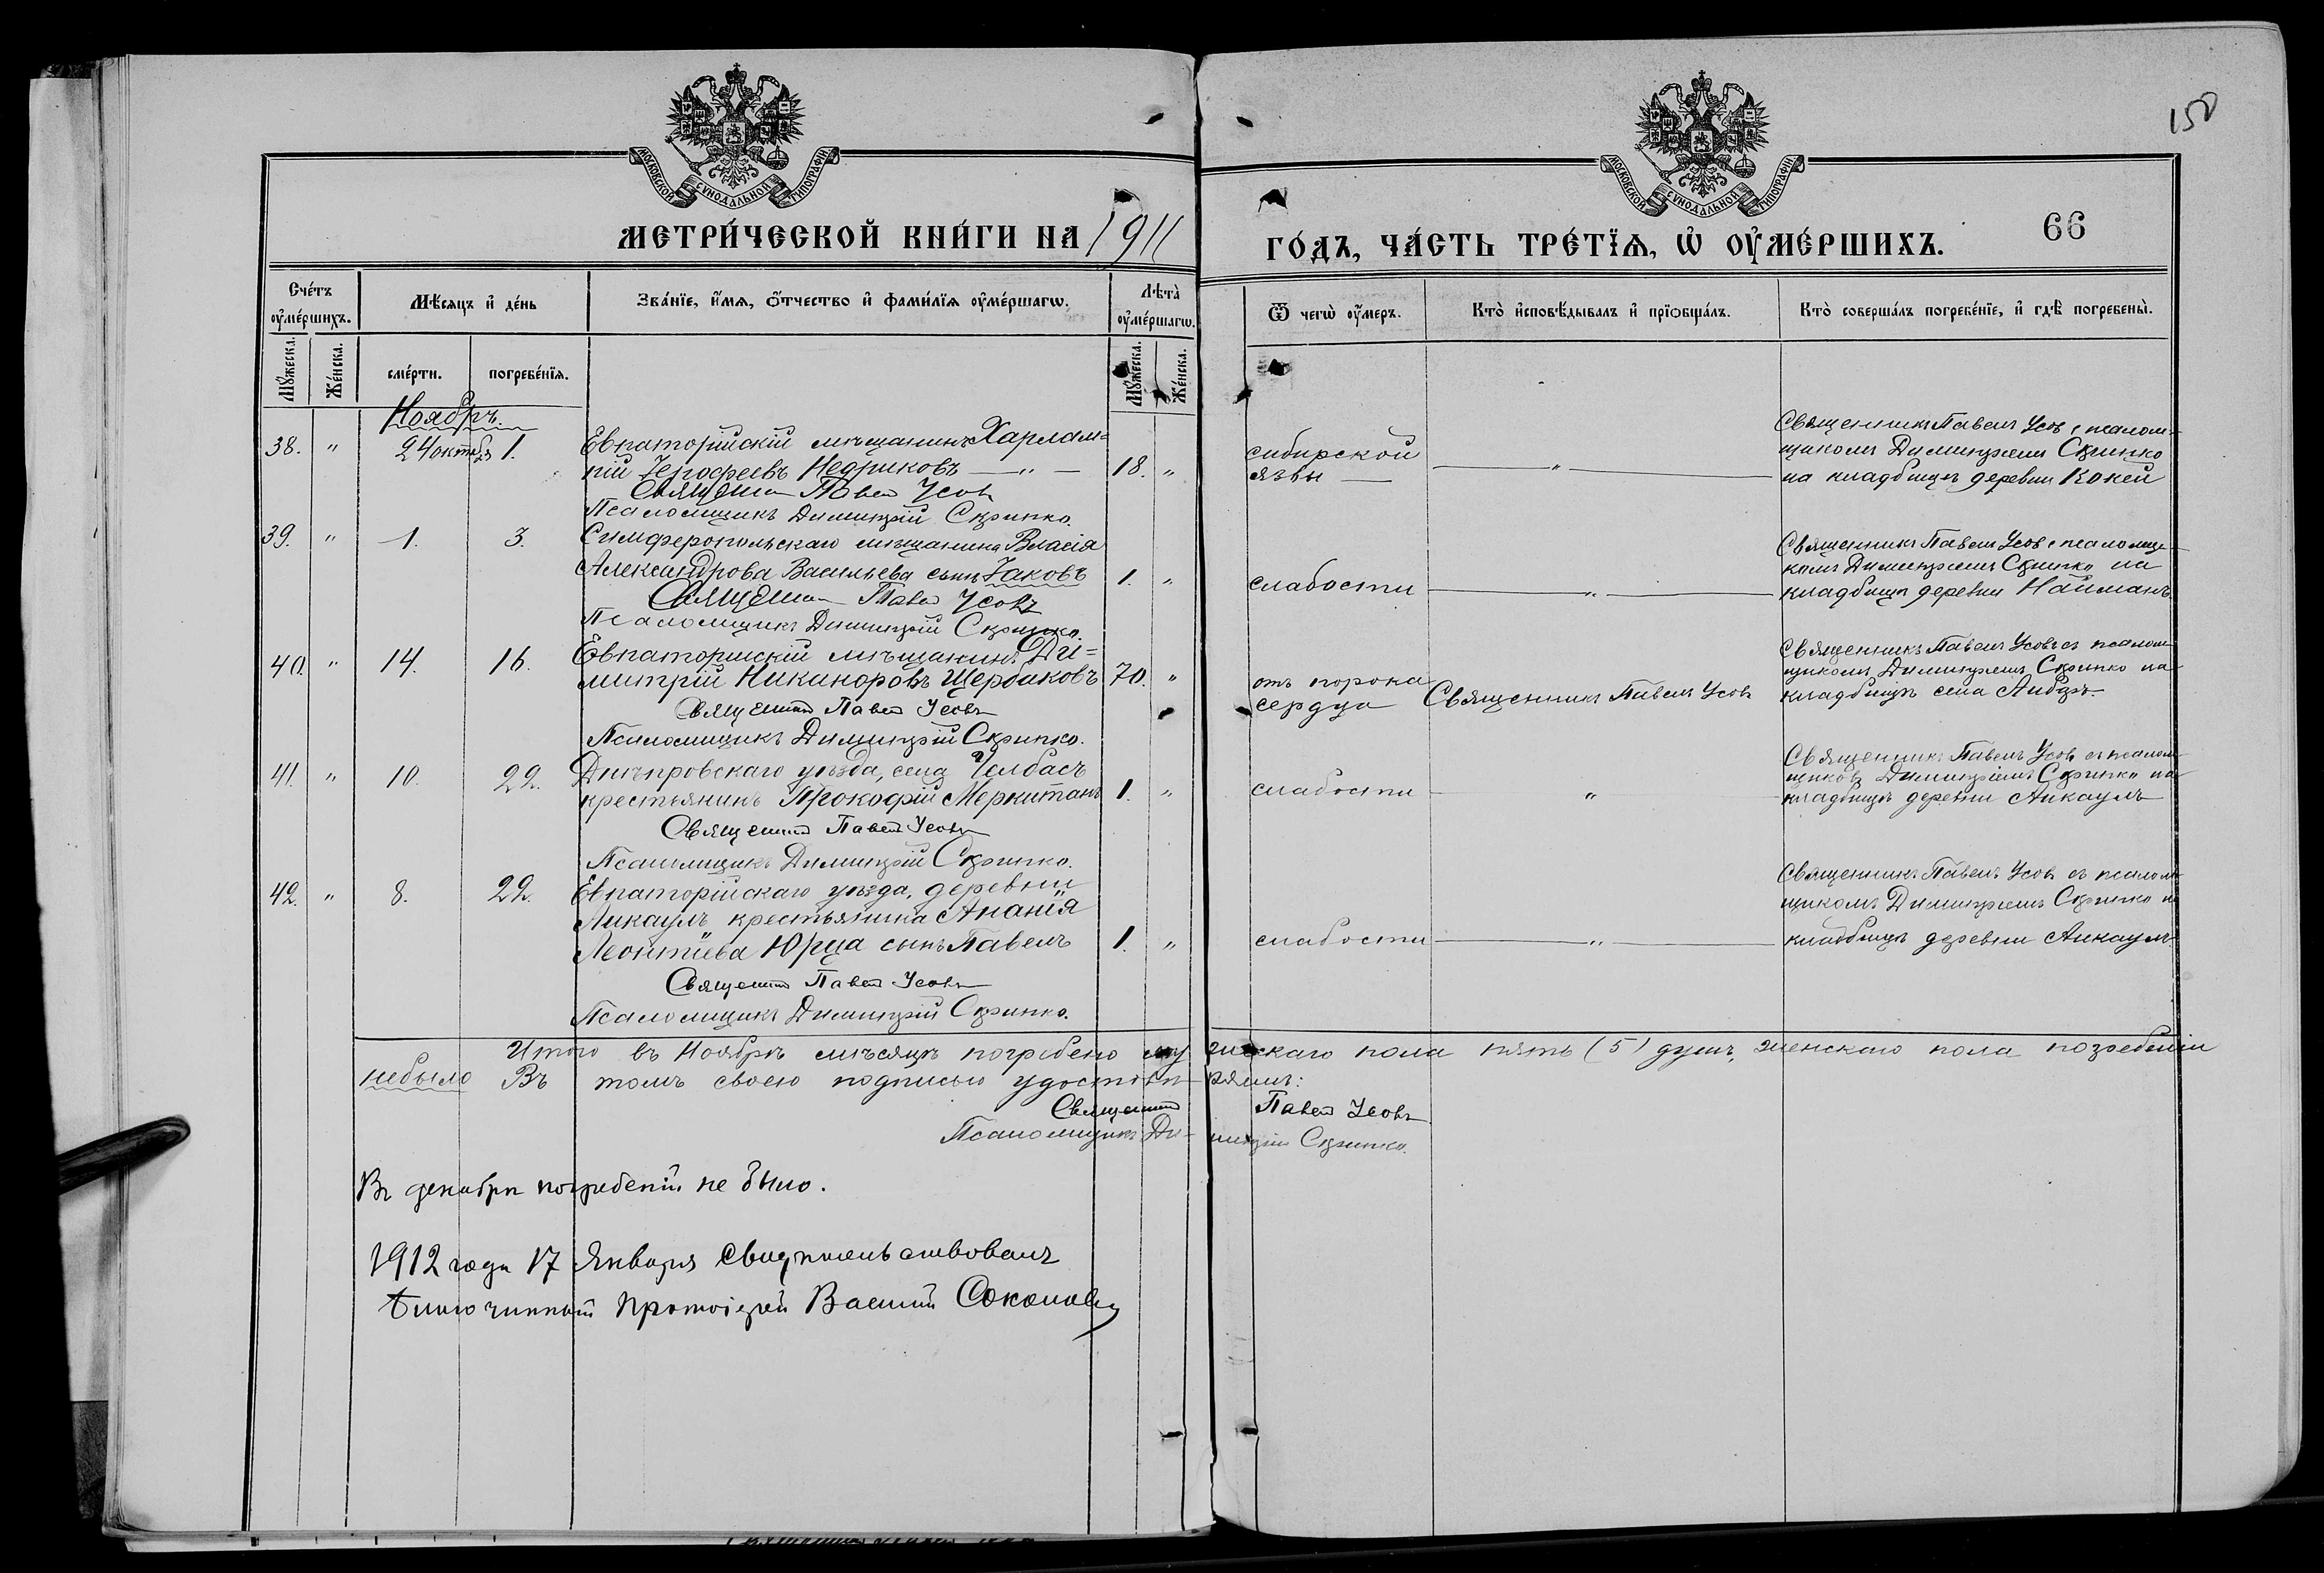 150
МОСКОВСКОЙ СѴНОДАЛЬНОЙ ТИПОГРАФІИ
МОСКОВСКОЙ СѴНОДАЛЬНОЙ ТИПОГРАФІИ
МЕТРИ́ЧЕСКОЙ КНИ́ГИ НА 1911
ГО́ДЪ, ЧА́СТЬ ТРЕ́ТЇѦ, Ѡ҆ ОУ҆МЕ́РШИХЪ.
66
Сче́тъ оу҆ме́ршихъ.
Мѣ́сяцъ и҆ де́нь
Зва́нїе, и҆́мя, ѻ҆́тчество и҆ фами́лїя оу҆ме́ршагѡ.
Лѣта̀ оу҆ме́ршагѡ.
Ѿ чегѡ̀ оу҆́меръ.
Кто̀ и҆сповѣ́дывалъ и҆ прїѻбща́лъ.
Кто̀ соверша́лъ погребе́нїе, и҆ гдѣ̀ погребены̀.
Мꙋ́жеска.
Же́нска.
сме́рти.
погребе́нїя.
Мꙋ́жеска.
Же́нска.
Ноябрь.
38. " 24 октяб 1. Евпаторійскій мѣщанинъ Харлам=
пій Іерофеевъ Недриковъ — " — 18. "
Священ Павел Усовъ
Псаломщикъ Димитрій Скрипко.
сибирской
язвы — "
Священникъ Павелъ Усов с псалом-
щикомъ Димитріемъ Скрипко
на кладбищѣ деревни Кокей
39. " 1. 3. Симферопольскаго мѣщанина Власія
Александрова Васильева сынъ Іаковъ 1. "
Священ Павел Усовъ
Псаломщикъ Димитрій Скрипко.
слабости "
Священникъ Павелъ Усов с псаломщи-
комъ Димитріемъ Скрипко на
кладбищѣ деревни Найманъ
40. " 14. 16. Евпаторійскій мѣщанинъ Ди=
митрій Никаноровъ Щербаковъ 70. "
Священник Павел Усовъ
Псаломщикъ ДимитрійСкрипко.
отъ порока
сердца
Священникъ Павелъ Усовъ
Священникъ Павелъ Усовъ съ псалом-
щикомъ Димитріемъ Скрипко на
кладбищѣ села
41. " 10. 22. Днѣпровскаго уѣзда, села Челбасъ
крестьянинъ Прокофій Меркитанъ 1. "
Священник Павел Усовъ
Псаломщикъ Димитрій Скрипко.
слабости "
Священникъ Павелъ Усовъ съ псалом-
щиковъ Димитріемъ Скрипко на
кладбищѣ деревни Анкаулъ
42. " 8. 22. Евпаторійскаго уѣзда, деревни
Анкаулъ крестьянина Ананія
Леонтіева Юрца сынъ Павелъ 1. "
Священник Павел Усовъ
Псаломщикъ Димитрій Скрипко.
слабости "
Священникъ Павелъ Усовъ съ псалом-
щикомъ Димитріемъ Скрипко н
кладбищѣ деревни Анкаулъ.
Итого въ Ноябрѣ мѣсяцѣ погребено мужескаго пола пять (5) душъ, женскаго пола погребеній
небыло Въ томъ своею подписью удостовѣряемъ:
Священник Павел Усовъ
Псаломщикъ Димитрій Скрипко.
Въ декабрѣ погребеній не было.
1912 года 17 Января Свидѣтельствовалъ
Благочинный Протоіерей Василій Соколовъ